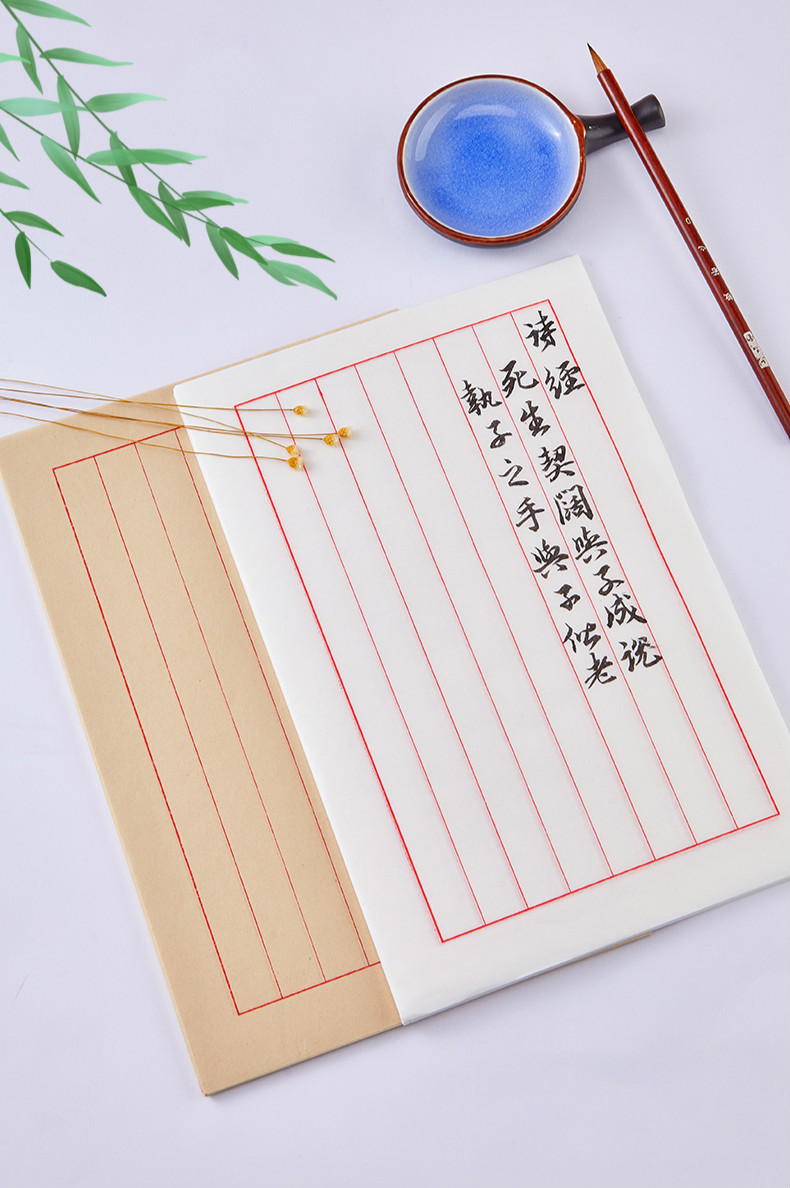 诗经
死生契阔與子成说
執子之手與子偕老